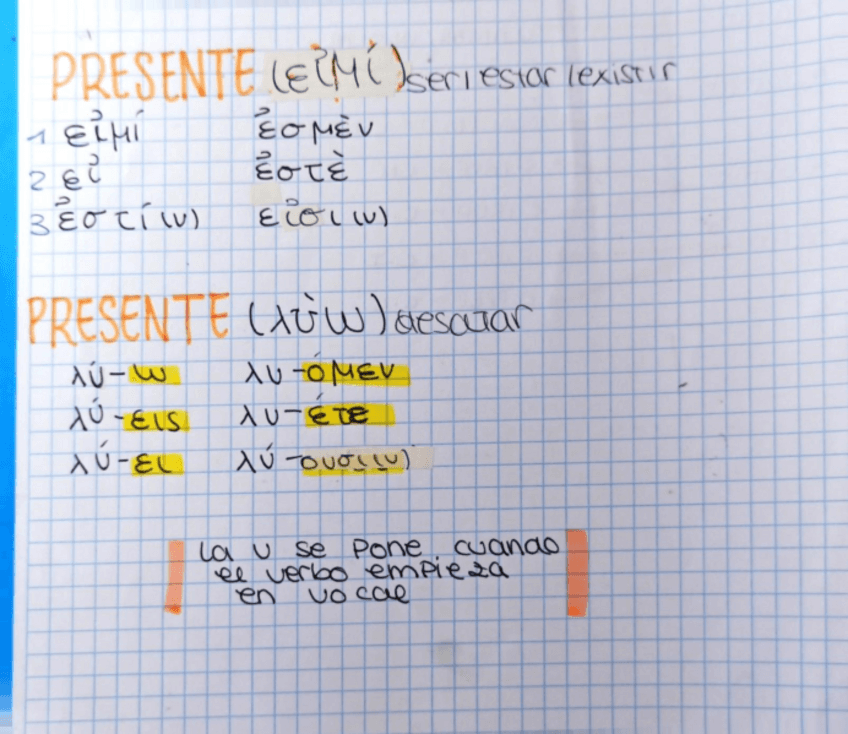 PRESENTE (εἰμί) ser/estar/existir
1 εἰμί ἐσμὲν
2 εἰ̓ ἐστὲ
3 ἐστί(ν) εἰσι(ν)
PRESENTE (λὺω) desatar
λύ-ω λυ-όμεν
λύ-εις λυ-έτε
λύ-ει λύ-ουσι(ν)
La ν se pone cuando
el verbo empieza
en vocal